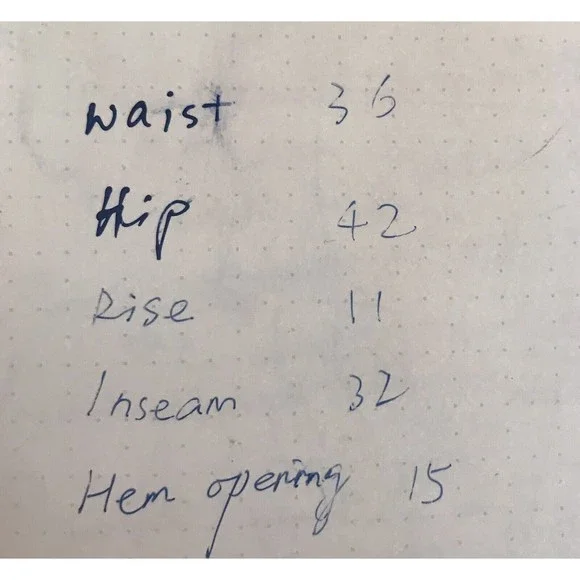 waist 36
Hip 42
Rise 11
Inseam 32
Hem opening 15